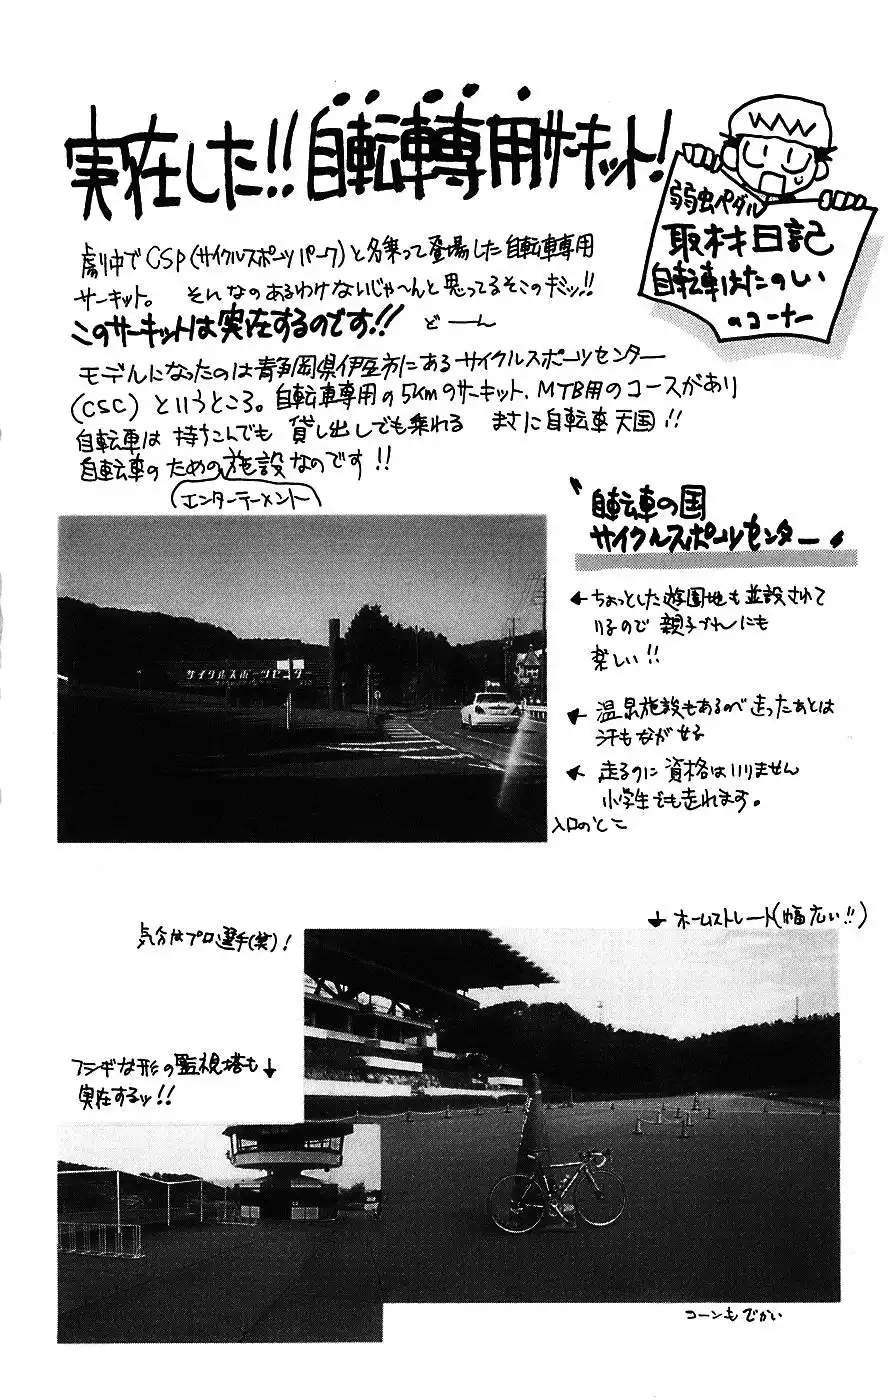 実在した!!自転車専用サーキット!
弱虫ペダル
取材日記
自転車はたのしい
のコーナー
劇中でCSP(サイクルスポーツパーク)と名乗って登場した自転車専用
サーキット。 そんなのあるわけないじゃ〜んと思ってるそこのキミッ!!
このサーキットは実在するのです!! どーん
モデルになったのは静岡県伊豆市にあるサイクルスポーツセンター
(CSC)というところ。自転車専用の5kmのサーキット、MTB用のコースがあり
自転車は持ちこんでも貸し出しでも乗れる まさに自転車天国!!
自転車のための施設なのです!!
(エンターテーメント)
〝自転車の国
サイクルスポーツセンター〟
サイクルスポーツセンター
←ちょっとした遊園地も並設されて
いるので親子づれにも
楽しい!!
←温泉施設もあるので走ったあとは
汗もながせる
←走るのに資格はいりません
小学生でも走れます。
入口のとこ
↓ホームストレート(幅広い!!)
気分はプロ選手(笑)!
フシギな形の監視塔も↓
実在するッ!!
コーンもでかい